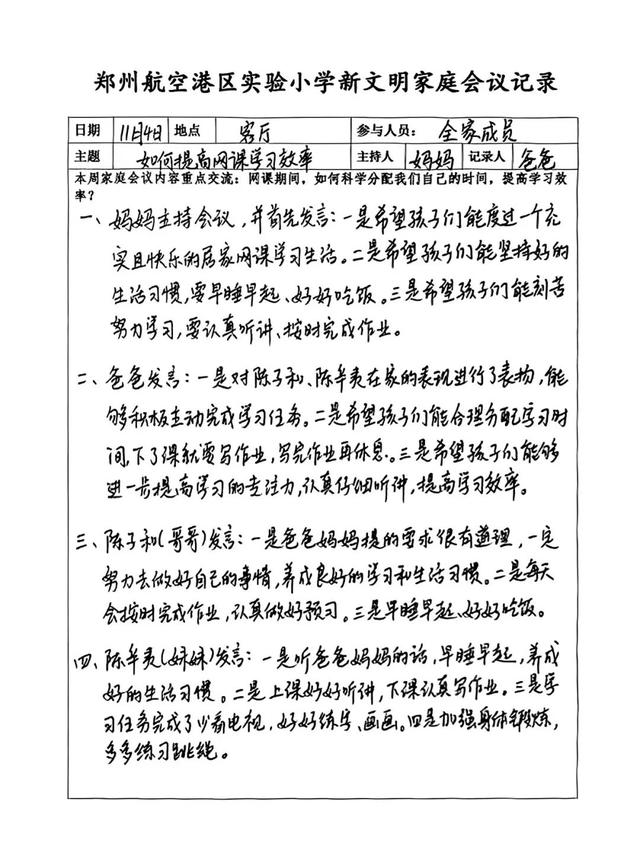 郑州航空港区实验小学新文明家庭会议记录
日期 11月4日 地点 客厅 参与人员： 全家成员
主题 如何提高网课学习效率 主持人 妈妈 记录人 爸爸
本周家庭会议内容重点交流：网课期间，如何科学分配我们自己的时间，提高学习效
率？
一、妈妈主持会议，并首先发言：一是希望孩子们能度过一个充
实且快乐的居家网课学习生活。二是希望孩子们能坚持好的
生活习惯，要早睡早起、好好吃饭。三是希望孩子们能刻苦
努力学习，要认真听讲、按时完成作业。
二、爸爸发言：一是对陈子和、陈羊羙在家的表现进行了表扬，能
够积极主动完成学习任务。二是希望孩子们能合理分配学习时
间，下了课就要写作业，写完作业再休息。三是希望孩子们能够
进一步提高学习的专注力，认真仔细听讲，提高学习效率。
三、陈子和（哥哥）发言：一是爸爸妈妈提的要求很有道理，一定
努力去做好自己的事情，养成良好的学习和生活习惯。二是每天
会按时完成作业，认真做好预习。三是早睡早起、好好吃饭。
四、陈（妹妹）发言：一是听爸爸妈妈的话，早睡早起，养成
好的生活习惯。二是上课好好听讲，下课认真写作业。三是学
习任务完成了少看电视，好好练字、画画。四是加强身体锻炼，
多多练习跳绳。